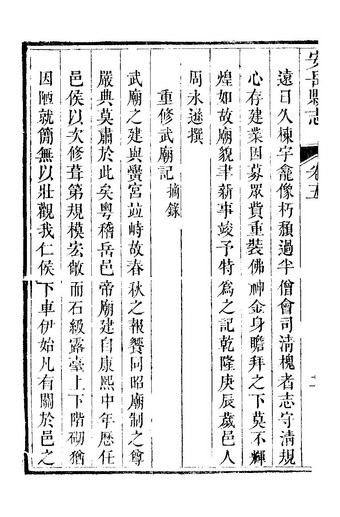 安岳縣志 卷五
遠日久棟宇龕像朽頹過半僧會司淸槐者志守淸規
心存建業因募眾貲重裝佛神金身瞻拜之下莫不輝
煌如故廟貌聿新事竣予特爲之記乾隆庚辰歲邑人
周永遜撰
重修武廟記摘錄
武廟之建與黌宮竝峙故春秋之報饗同昭廟制之尊
嚴典莫肅於此矣粵稽岳邑帝廟建自康熙中年歷任
邑侯以次修葺第規模宏敞而石級露臺上下階砌猶
因陋就簡無以壯觀我仁侯下車伊始凡有關於邑之